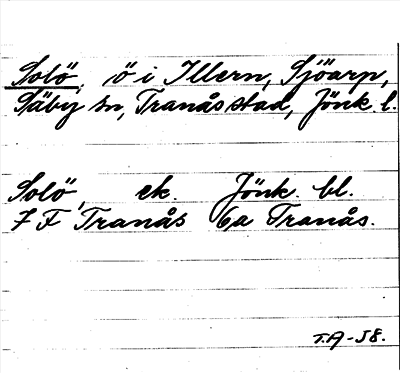 Solö, ö i Illern, Sjöarp,
Säby sn, Tranås stad, Jönk. l.
Solö, ek. Jönk. bl.
7 F Tranås 6a Tranås.
T.A-58.